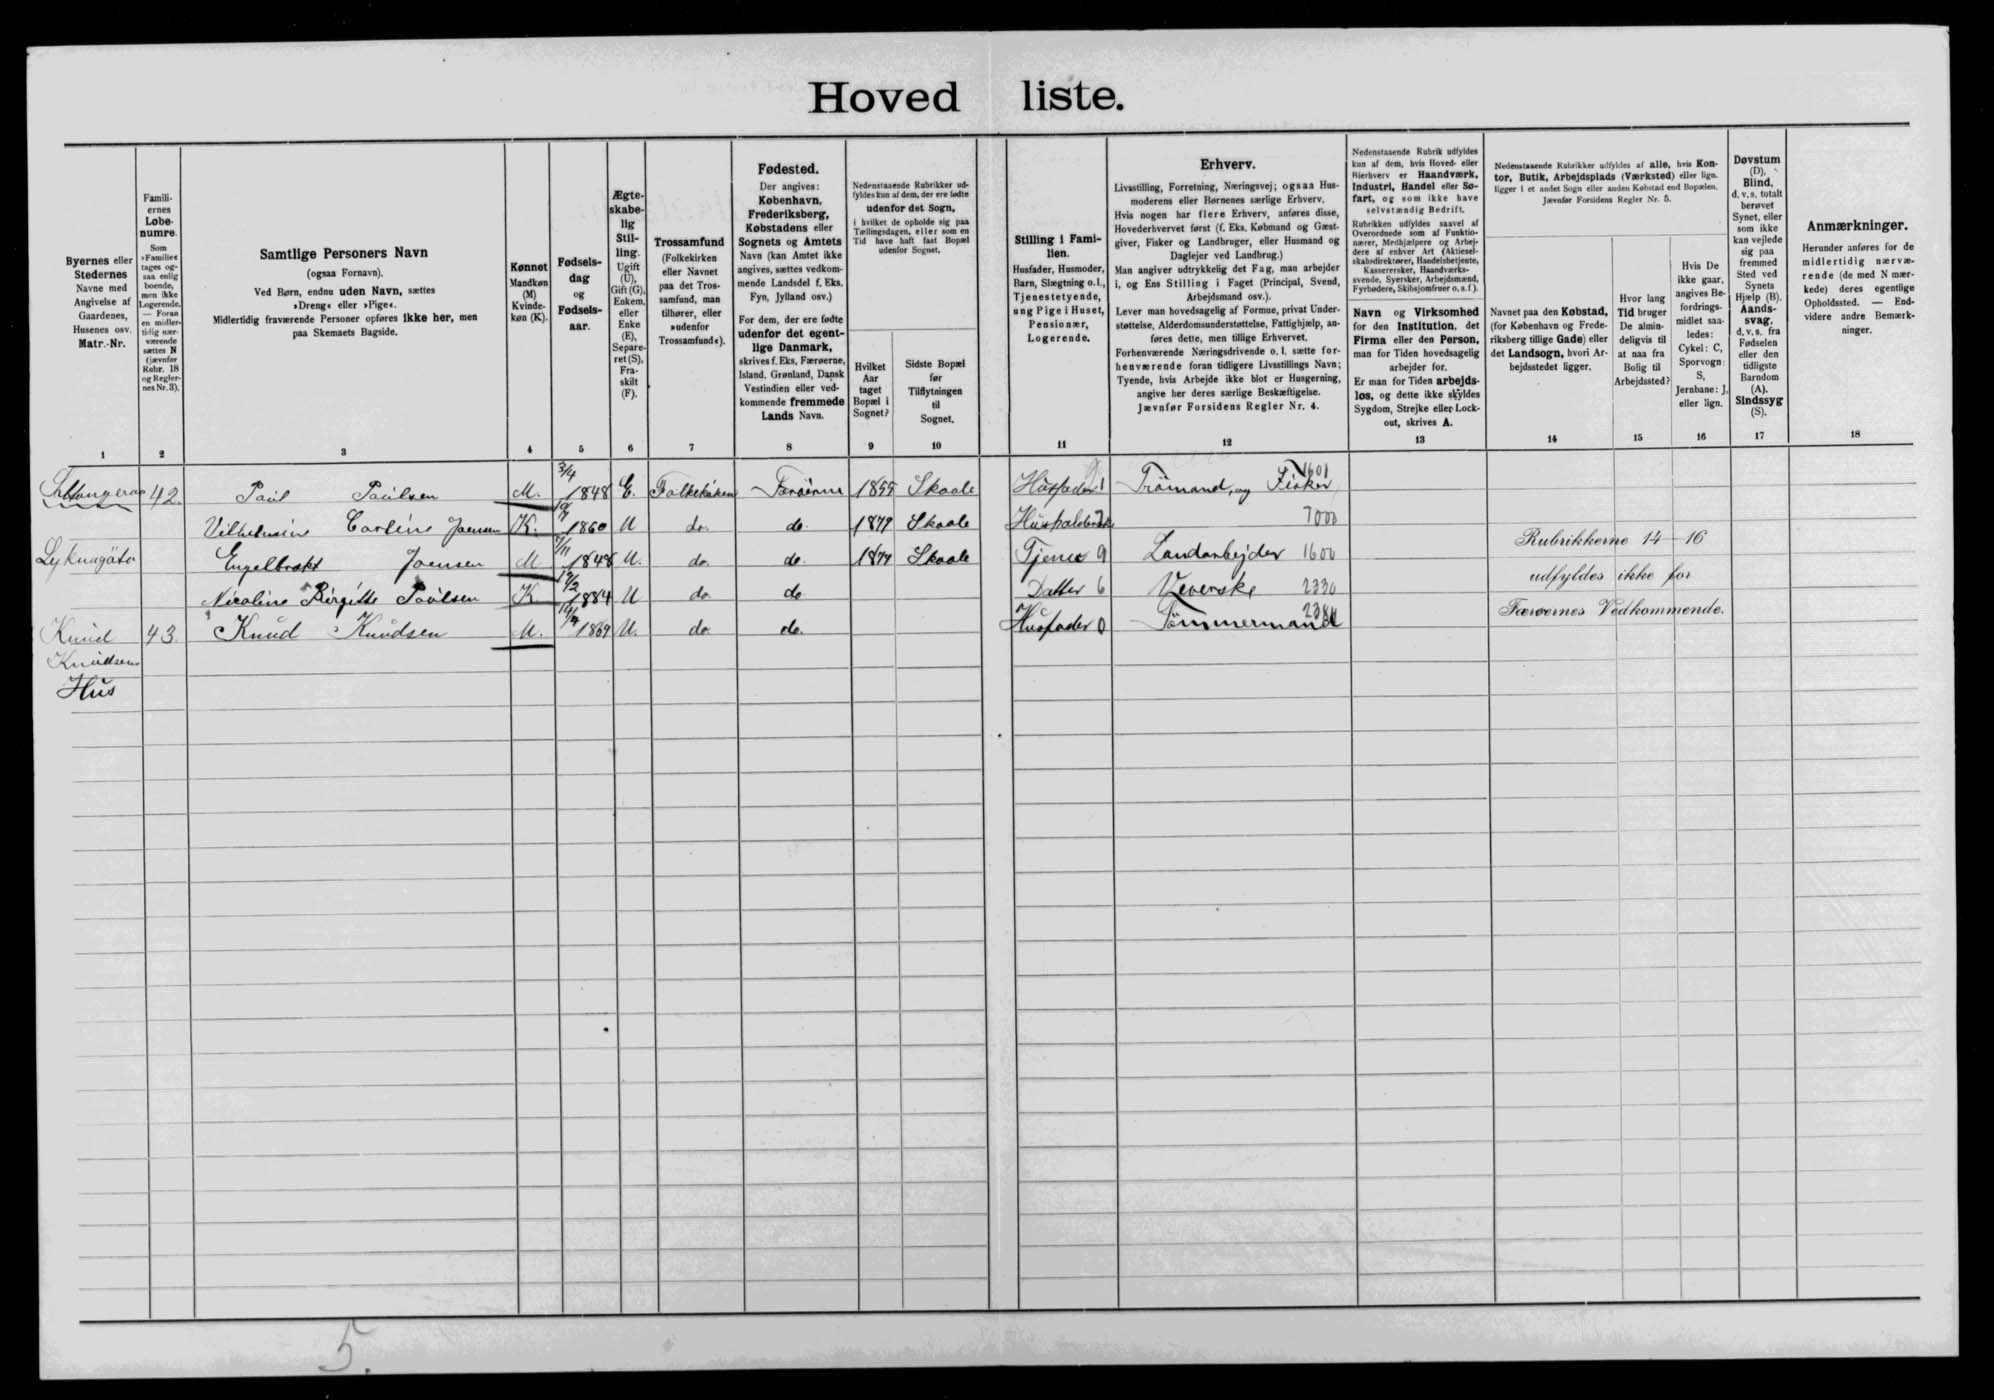 Hoved liste.
Byernes eller
Stedernes
Navne med
Angivelse af
Gaardenes,
Husenes osv.
Matr.-Nr.
Famili-
ernes
Løbe-
numre.
Som
»Familie«
tages og-
saa enlig
boende,
men ikke
Logerende.
— Foran
en midler-
tidig nær-
værende
sættes N
(jævnfør
Rubr. 18
og Regler-
nes Nr. 3).
Samtlige Personers Navn
(ogsaa Fornavn).
Ved Børn, endnu uden Navn, sættes
»Dreng« eller »Pige«.
Midlertidig fraværende Personer opføres ikke her, men
paa Skemaets Bagside.
Kønnet
Mandkøn
(M)
Kvinde-
køn (K).
Fødsels-
dag
og
Fødsels-
aar.
Ægte-
skabe-
lig
Stil-
ling.
Ugift
(U),
Gift (G),
Enkem.
eller
Enke
(E),
Separe-
ret (S),
Fra-
skilt
(F).
Trossamfund
(Folkekirken
eller Navnet
paa det Tros-
samfund, man
tilhører, eller
»udenfor
Trossamfund«).
Fødested.
Der angives:
København,
Frederiksberg,
Købstadens eller
Sognets og Amtets
Navn (kan Amtet ikke
angives, sættes vedkom-
mende Landsdel f. Eks.
Fyn, Jylland osv.)
For dem, der ere fødte
udenfor det egent-
lige Danmark,
skrives f. Eks. Færøerne,
Island, Grønland, Dansk
Vestindien eller ved-
kommende fremmede
Lands Navn.
Nedenstaaende Rubrikker ud-
fyldes kun af dem, der ere fødte
udenfor det Sogn,
i hvilket de opholde sig paa
Tællingsdagen, eller som en
Tid have haft fast Bopæl
udenfor Sognet.
Hvilket
Aar
taget
Bopæl i
Sognet?
Sidste Bopæl
før
Tilflytningen
til
Sognet.
Stilling i Fami-
lien.
Husfader, Husmoder,
Barn, Slægtning o. l.,
Tjenestetyende,
ung Pige i Huset,
Pensionær,
Logerende.
Erhverv.
Livsstilling, Forretning, Næringsvej; ogsaa Hus-
moderens eller Børnenes særlige Erhverv.
Hvis nogen har flere Erhverv, anføres disse,
Hovederhvervet først (f. Eks. Købmand og Gæst-
giver, Fisker og Landbruger, eller Husmand og
Daglejer ved Landbrug.)
Man angiver udtrykkelig det Fag, man arbejder
i, og Ens Stilling i Faget (Principal, Svend,
Arbejdsmand osv.).
Lever man hovedsagelig af Formue, privat Under-
støttelse, Alderdomsunderstøttelse, Fattighjælp, an-
føres dette, men tillige Erhvervet.
Forhenværende Næringsdrivende o. l. sætte for-
henværende foran tidligere Livsstillings Navn;
Tyende, hvis Arbejde ikke blot er Husgerning,
angive her deres særlige Beskæftigelse.
Jævnfør Forsidens Regler Nr. 4.
Nedenstaaende Rubrik udfyldes
kun af dem, hvis Hoved- eller
Bierhverv er Haandværk,
Industri, Handel eller Sø-
fart, og som ikke have
selvstændig Bedrift.
Rubrikken udfyldes saavel af
Overordnede som af Funktio-
nærer, Medhjælpere og Arbej-
dere af enhver Art (Aktiesel-
skabsdirektører, Handelsbetjente,
Kassererskèr, Haandværks-
svende, Syersker, Arbejdsmænd,
Fyrbødere, Skibsjomfruer o. s. f.).
Navn og Virksomhed
for den Institution, det
Firma eller den Person,
man for Tiden hovedsagelig
arbejder for.
Er man for Tiden arbejds-
løs, og dette ikke skyldes
Sygdom, Strejke eller Lock-
out, skrives A.
Nedenstaaende Rubrikker udfyldes af alle, hvis Kon-
tor, Butik, Arbejdsplads (Værksted) eller lign.
ligger i et andet Sogn eller anden Købstad end Bopælen.
Jævnfør Forsidens Regler Nr. 5.
Navnet paa den Købstad,
(for København og Frede-
riksberg tillige Gade) eller
det Landsogn, hvori Ar-
bejdsstedet ligger.
Hvor lang
Tid bruger
De almin-
deligvis til
at naa fra
Bolig til
Arbejdssted?
Hvis De
ikke gaar,
angives Be-
fordrings-
midlet saa-
ledes:
Cykel: C,
Sporvogn:
S,
Jernbane: J,
eller lign.
Døvstum
(D),
Blind,
d. v. s. totalt
berøvet
Synet, eller
som ikke
kan vejlede
sig paa
fremmed
Sted ved
Synets
Hjælp (B).
Aands-
svag,
d. v. s. fra
Fødselen
eller den
tidligste
Barndom
(A).
Sindssyg
(S).
Anmærkninger.
Herunder anføres for de
midlertidig nærvæ-
rende (de med N mær-
kede) deres egentlige
Opholdssted. — End-
videre andre Bemærk-
ninger.
1 2 3 4 5 6 7 8 9 10 11 12 13 14 15 16 17 18
42. Poul Poulsen M. 3/4 1848 E. Folkekirken Færöerne 1855 Skaale Husfader 1 Trömand, og Fisker 1601
Vilhelmine Carline Joensen K. 1860 U do. do. 1879 Skaale 7000
Engelbrekt Joensen M 1848 U. do. do. Skaale Tjener 9 Landarbejder 1600 Rubrikkerne 14-16
Nicoline Birgitte Poulsen K. 1884 U do. do Datter 6 Væverske 2330 udfyldes ikke for
Knud 43. Knud Knudsen M. 1869 U. do. do. Husfader 0 Tömmermand Færøernes Vedkommende.
Knudsens
Hus
5.